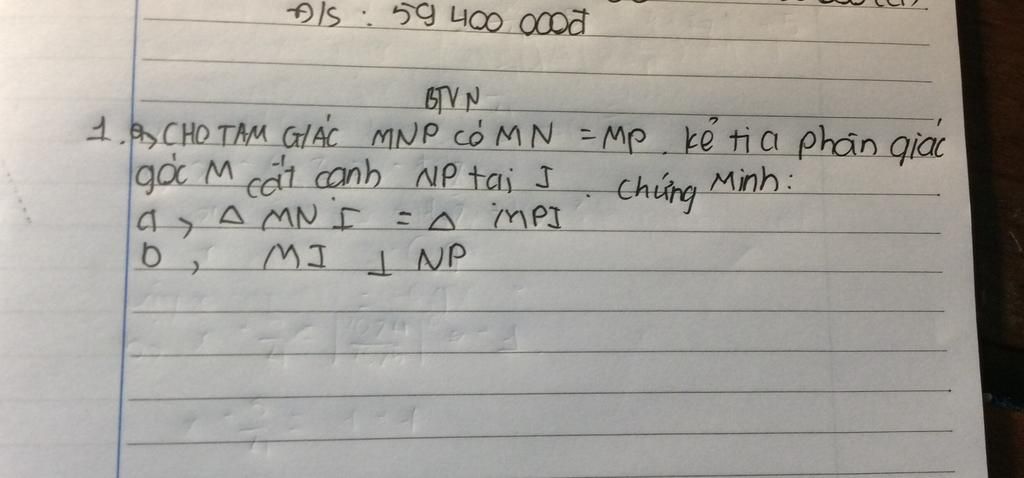 Đ/S : 59 400 000đ
BTVN
1. CHO TAM GIÁC MNP CÓ MN = MP. kẻ tia phân giác
góc M cắt cạnh NP tại I. Chứng Minh:
a, Δ MNI = Δ MPI
b, MI ⊥ NP